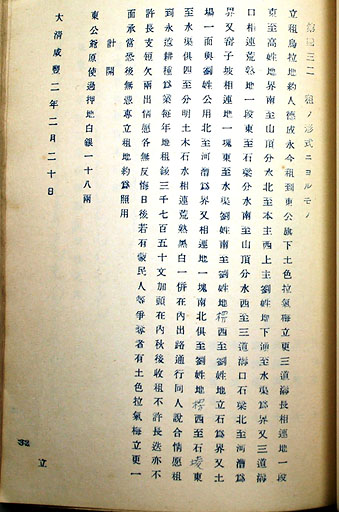 租ノ形式ニヨルモノ
立租烏拉地約人德成永今租到東公旗下土色拉氣梅立更三道海長相連地一段
東至高姓地界南至山頂分水北至本主西上主劉姓地下涌至水渠爲界又三道海
口相連荒熟地一段東至石梁分水南至山頂分水西至三道海口石梁北至河漕爲
界又窑子坡相連地一塊東至水渠劉姓地南至劉姓地西至劉姓地立石爲界又土
場一面與劉姓公用北至河漕爲界又相連地一塊南北俱至劉姓地西至石堎東
至水渠俱四至分明土木石水相連荒熟黑白一併在內出路通行同人說合情愿租
到永遠耕種爲業每年地租錢三千七百五十文加頭在內秋後收租不許長迭亦不
許長支短欠兩出情愿各無反悔日後若有蒙民人等爭奪者有土色拉氣梅立更一
面承當恐後無憑專立租地約爲照用
計開
東公爺原使過押地白銀一十八兩
大清咸豐二年二月二十日
立
32